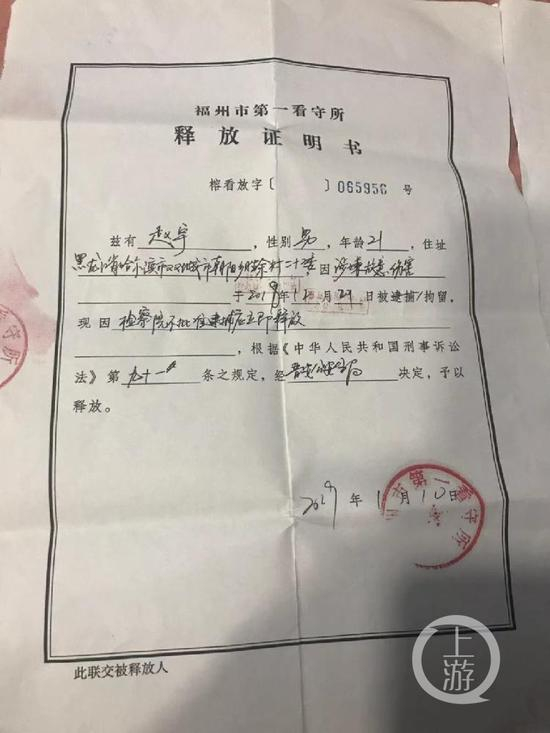 福州市第一看守所
释放证明书
榕看放字〔 〕065956 号
兹有 赵宇 ,性别 男 ,年龄 21 ,住址
黑龙江省哈尔滨市双城市朝阳乡 村 因 涉嫌故意伤害
于 2018 年 12 月 29 日被逮捕/拘留,
现因 检察院不批准逮捕应立即释放
,根据《中华人民共和国刑事诉讼
法》第 九十一 条之规定,经 晋安 决定,予以
释放。
2019 年 1 月 10 日
第一看守所
守所
此联交被释放人
上游